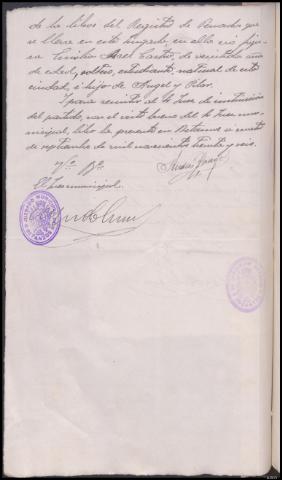 de los libros del Registro de Penados que
se lleva en este Juzgado, en ellos no figu-
ra Emilio Astel Castro, de veintidos años
de edad, soltero, estudiante, natural de esta
ciudad, é hijo de Angel y Pilar.
Y para remitir al Sr Juez de instrucción
del partido, con el visto bueno del Sr Juez mu-
nicipal, libro la presente en Betanzos a
de septiembre de mil novecientos treinta y seis.
Vº Bº
El Juez municipal
JUZGADO MUNICIPAL
BETANZOS